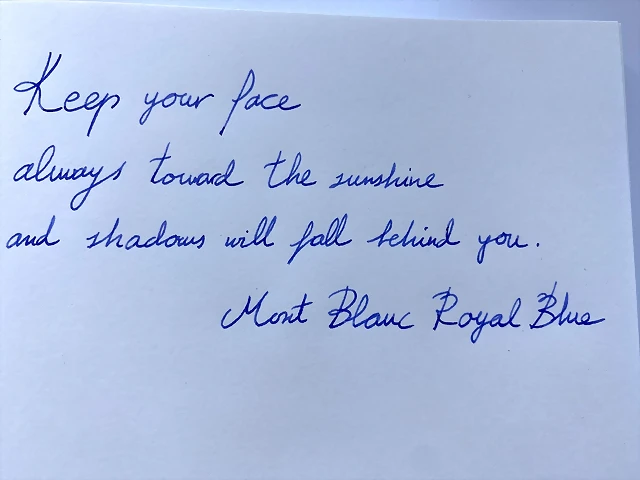 Keep your face
always toward the sunshine
and shadows will fall behind you.
Mont Blanc Royal Blue